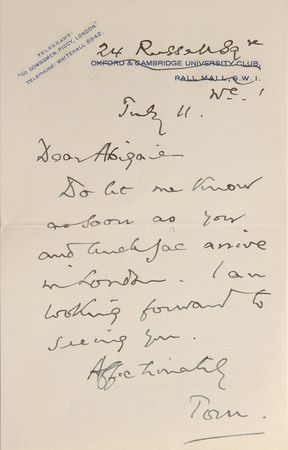 TELEGRAMS:
"GO GOWNSMEN, PICCY, LONDON."
TELEPHONE: WHITEHALL 8942.
24 Russell Sqre
OXFORD & CAMBRIDGE UNIVERSITY CLUB,
PALL MALL, S.W. 1.
W.C. 1
July 11.
Dear Abigail
Do let me know
as soon as you
and Uncle Jac arrive
in London. I am
looking forward to
seeing you.
Affectionately
Tom.